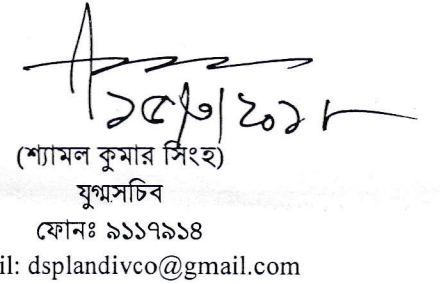 ১৫/৩/২০১৮
(শ্যামল কুমার সিংহ)
যুগ্মসচিব
ফোনঃ ৯১১৭৯১৪
il: dsplandivco@gmail.com